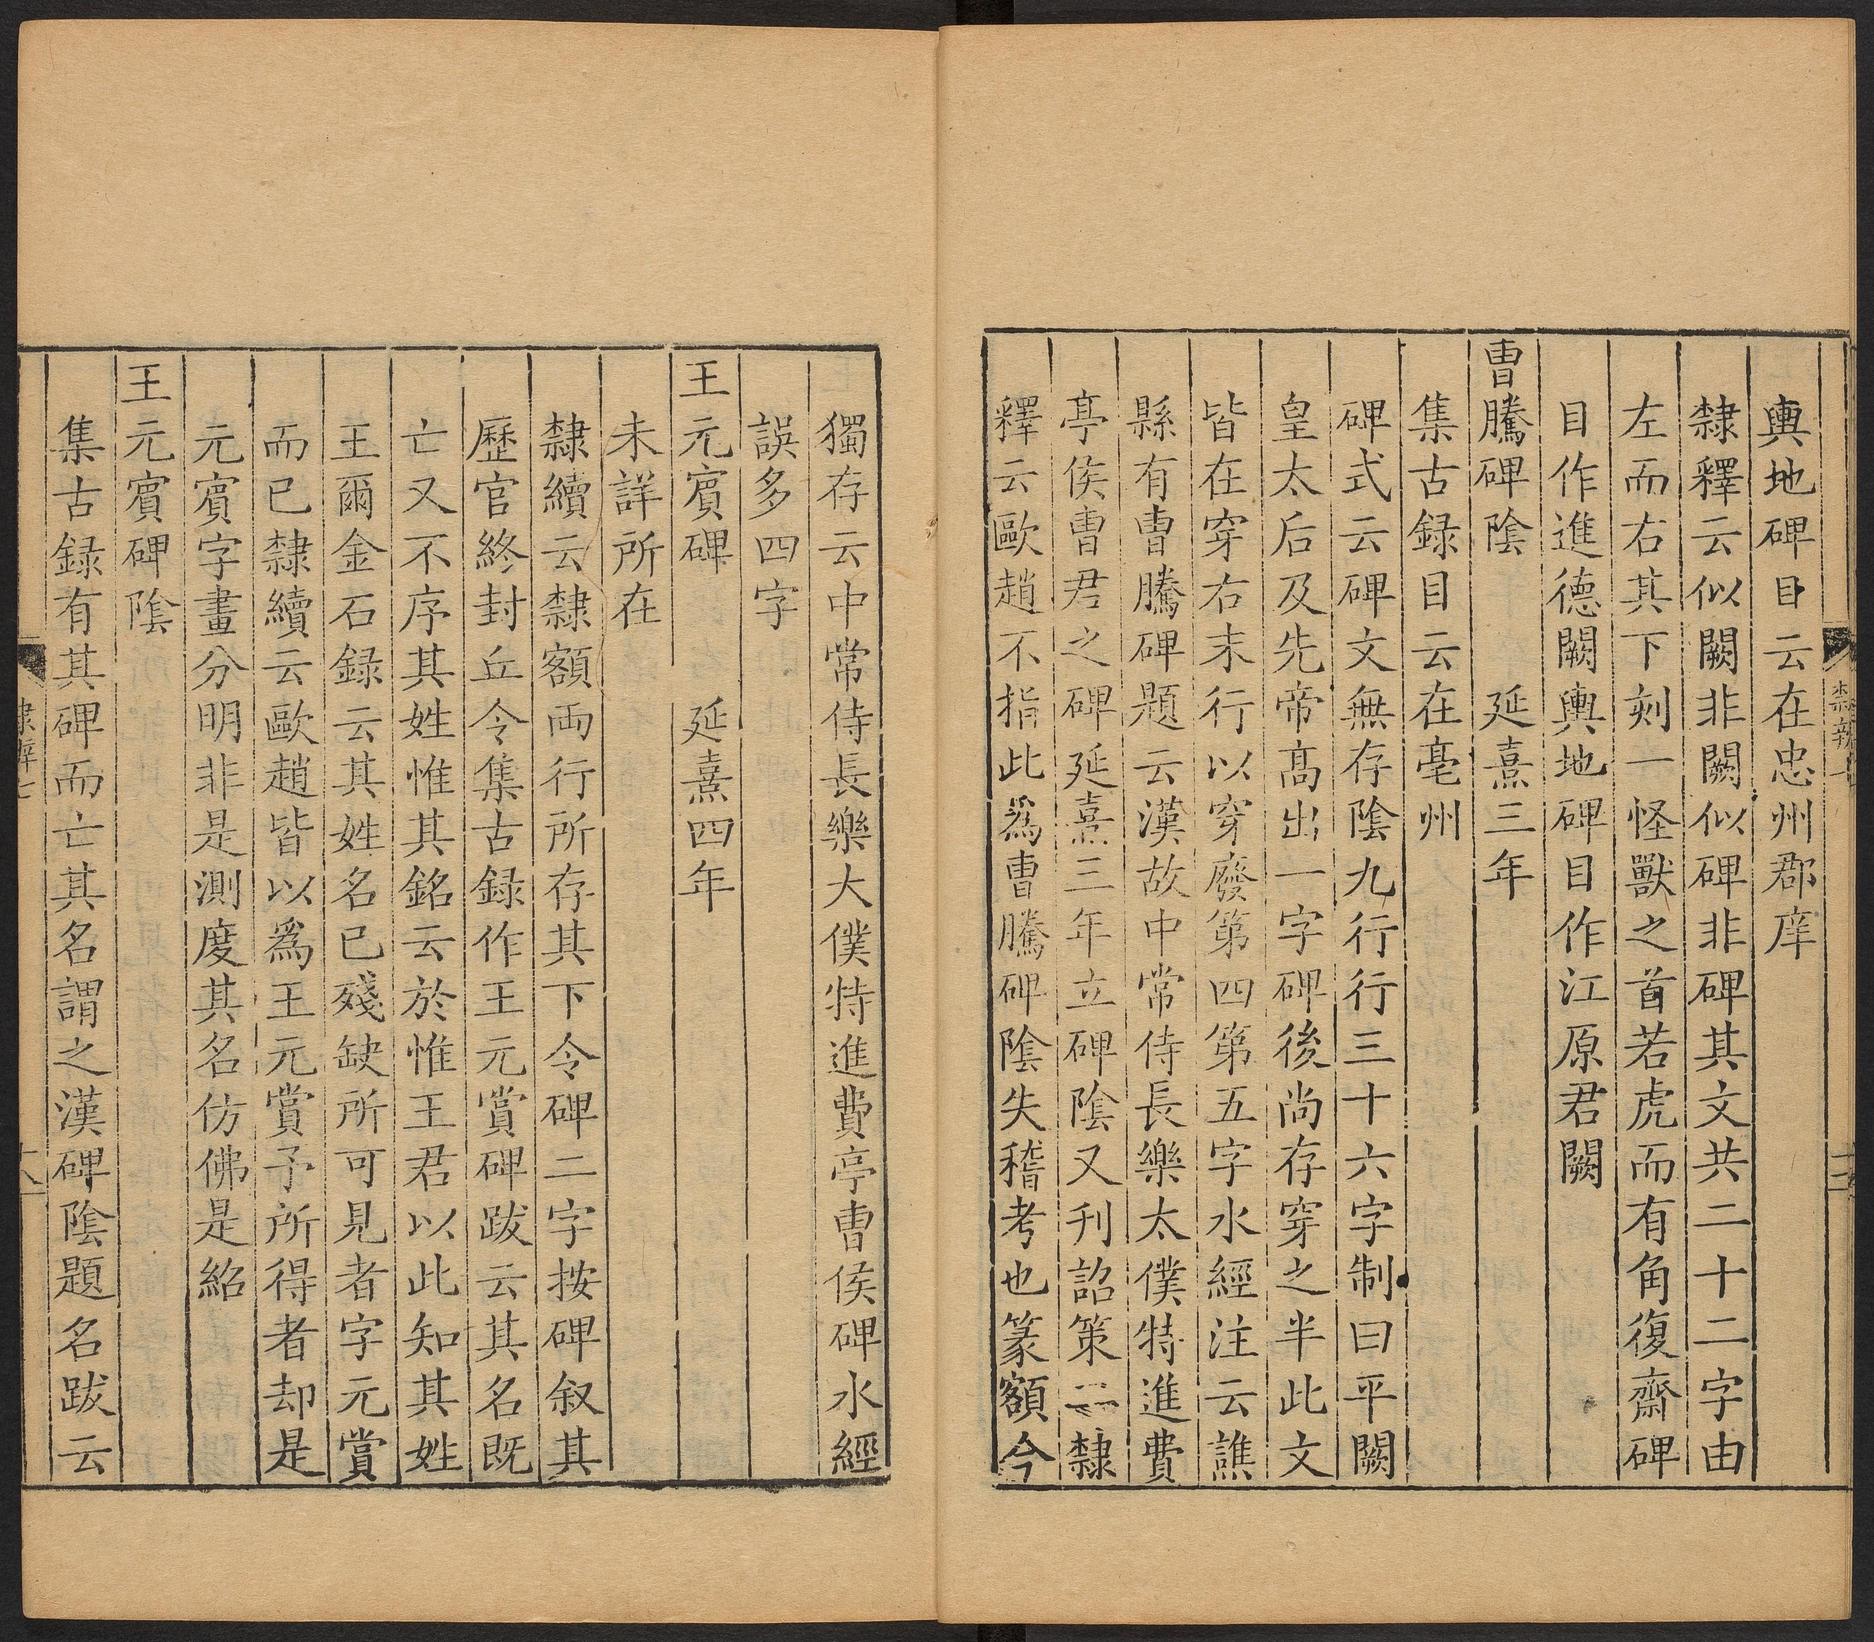 輿地碑目云在忠州郡庠
隸釋云似闕非闕似碑非碑其文共二十二字由
左而右其下刻一怪獸之首若虎而有角復齋碑
目作進德闕輿地碑目作江原君闕
曹騰碑陰 延熹三年
集古録目云在亳州
碑式云碑文無存陰九行行三十六字制曰平闕
皇太后及先帝高出一字碑後尚存穿之半此文
皆在穿右末行以穿廢第四第五字水經注云譙
縣有曹騰碑題云漢故中常侍長樂太僕特進費
亭侯曹君之碑延熹三年立碑陰又刊詔策二隸
釋云歐趙不指此爲曹騰碑陰失稽考也篆額今
獨存云中常侍長樂大僕特進費亭曹侯碑水經
誤多四字
王元賓碑 延熹四年
未詳所在
隸續云隸額兩行所存其下令碑二字按碑叙其
歷官終封丘令集古録作王元賞碑跋云其名既
亡又不序其姓惟其銘云於惟王君以此知其姓
王爾金石録云其姓名已殘缺所可見者字元賞
而已隸續云歐趙皆以爲王元賞予所得者却是
元賓字畫分明非是測度其名仿佛是紹
王元賓碑陰
集古録有其碑而亡其名謂之漢碑陰題名跋云